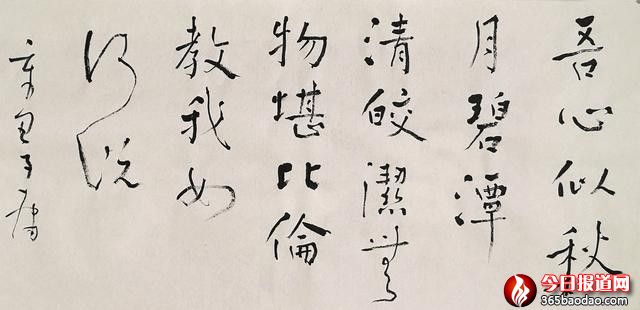 吾心似秋
月碧潭
清皎潔無
物堪比倫
教我如
何说
今日报道网
365baodao.com